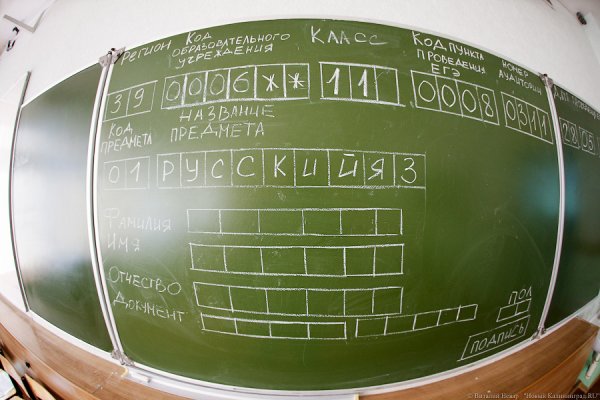 Регион Код образовательного учреждения Класс Код пункта проведения ЕГЭ Номер аудитории
39 0006** 11 0008 0311 28 05
Код предмета Название предмета
01 РУССКИЙ ЯЗ
Фамилия
Имя
Отчество
Документ Пол
подпись
© Виталий Невар - "Новый Калининград.RU"